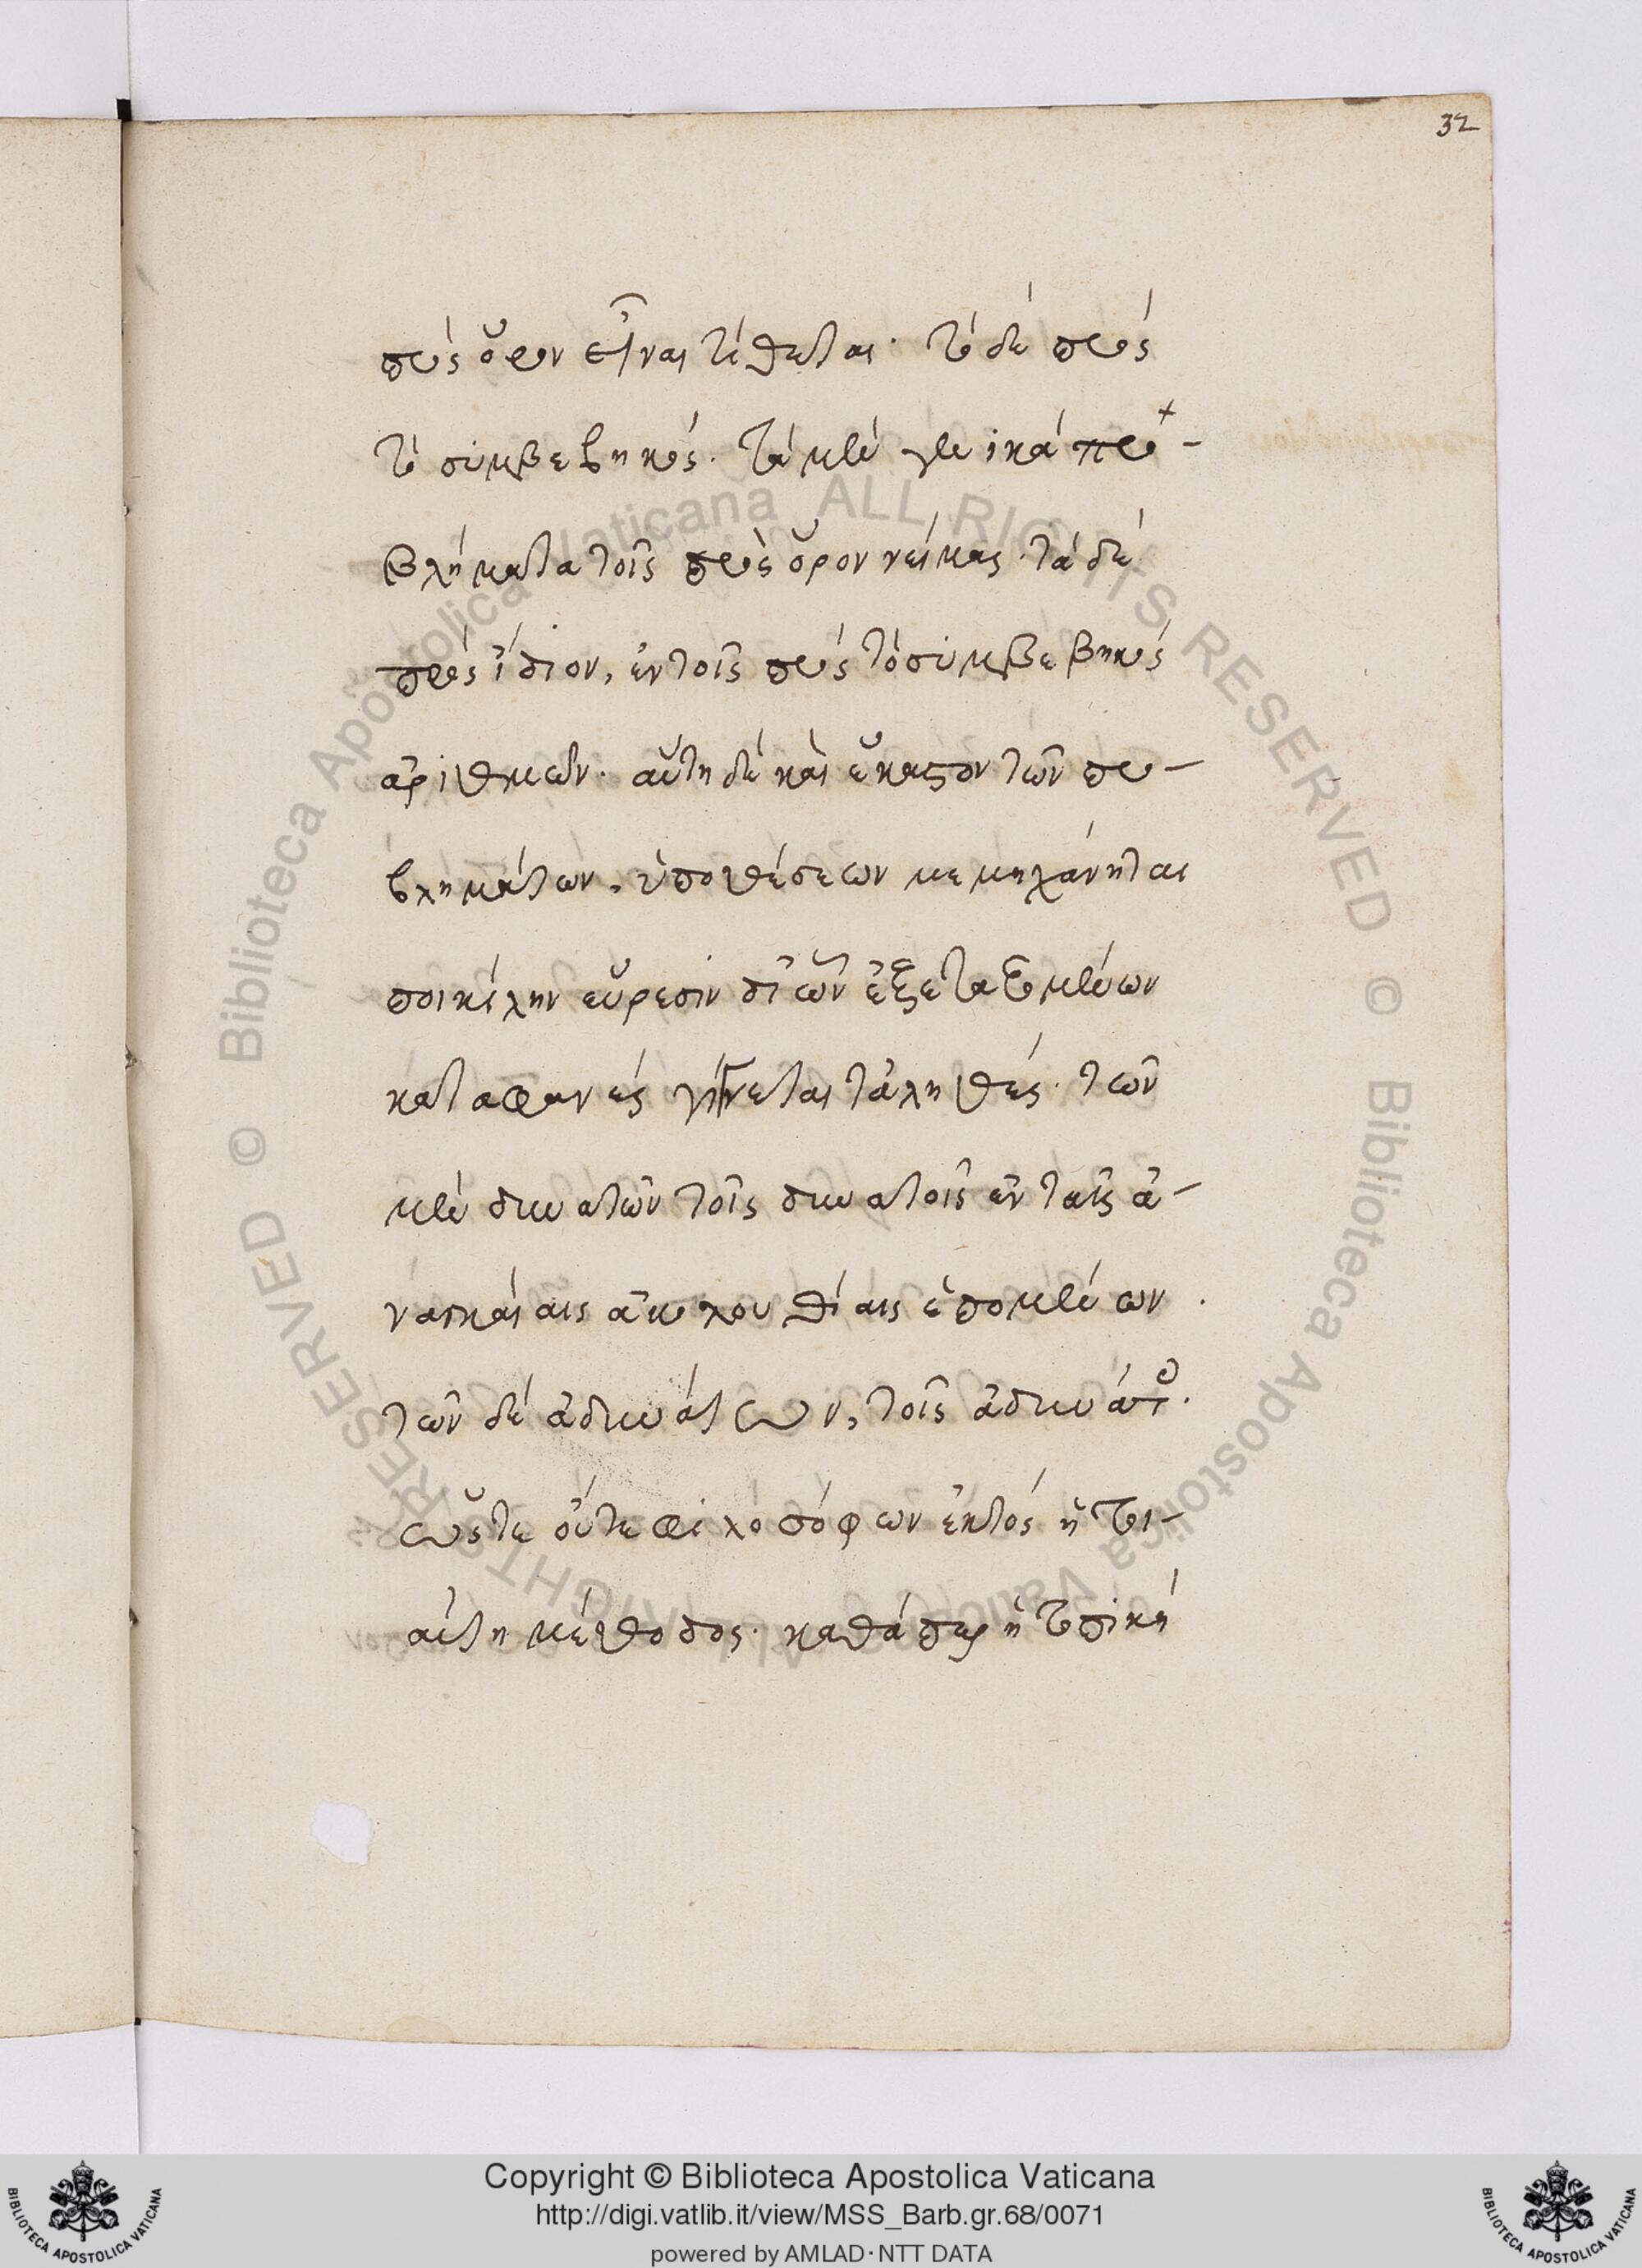 32
πρὸς ὅρον εἶναι τίθεται· τὸ δὲ πρὸς
τὸ συμβεβηκός. τὰ μὲν γενικὰ προ-
βλήματα τοῖς πρὸς ὅρον νείμας· τὰ δὲ
πρὸς ἴδιον, ἐν τοῖς πρὸς τὸ συμβεβηκὸς
ἀριθμῶν. αὕτη δὲ καὶ ἕκαστον τῶν προ-
βλημάτων, ὑποθέσεων μεμηχάνηται
ποικίλην εὕρεσιν δι' ὧν ἐξεταζομένων
καταφανὲς γίνεται τἀληθές· τῶν
μὲν δυνατῶν τοῖς δυνατοῖς ἐν ταῖς ἀ-
ναγκαίαις ἀκολουθίαις ἑπομένων.
τῶν δὲ ἀδυνάτων, τοῖς ἀδυνάτοις.
ὥστε οὔτε φιλοσόφων ἐκτὸς ἡ τοι-
αύτη μέθοδος. καθάπερ ἡ τοπικὴ
Copyright © Biblioteca Apostolica Vaticana
http://digi.vatlib.it/view/MSS_Barb.gr.68/0071
powered by AMLAD·NTT DATA
BIBLIOTECA APOSTOLICA VATICANA
BIBLIOTECA APOSTOLICA VATICANA
© Biblioteca Apostolica Vaticana ALL RIGHTS RESERVED © Biblioteca Apostolica Vaticana ALL RIGHTS RESERVED